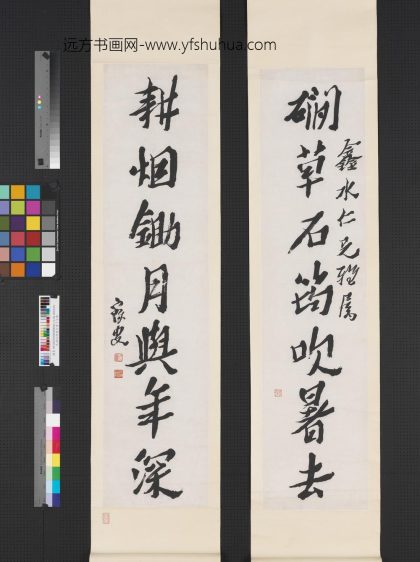 远方书画网-www.yfshuhua.com
鑫水仁兄雅属
磵草石笛吹暑去
耕烟锄月與年深